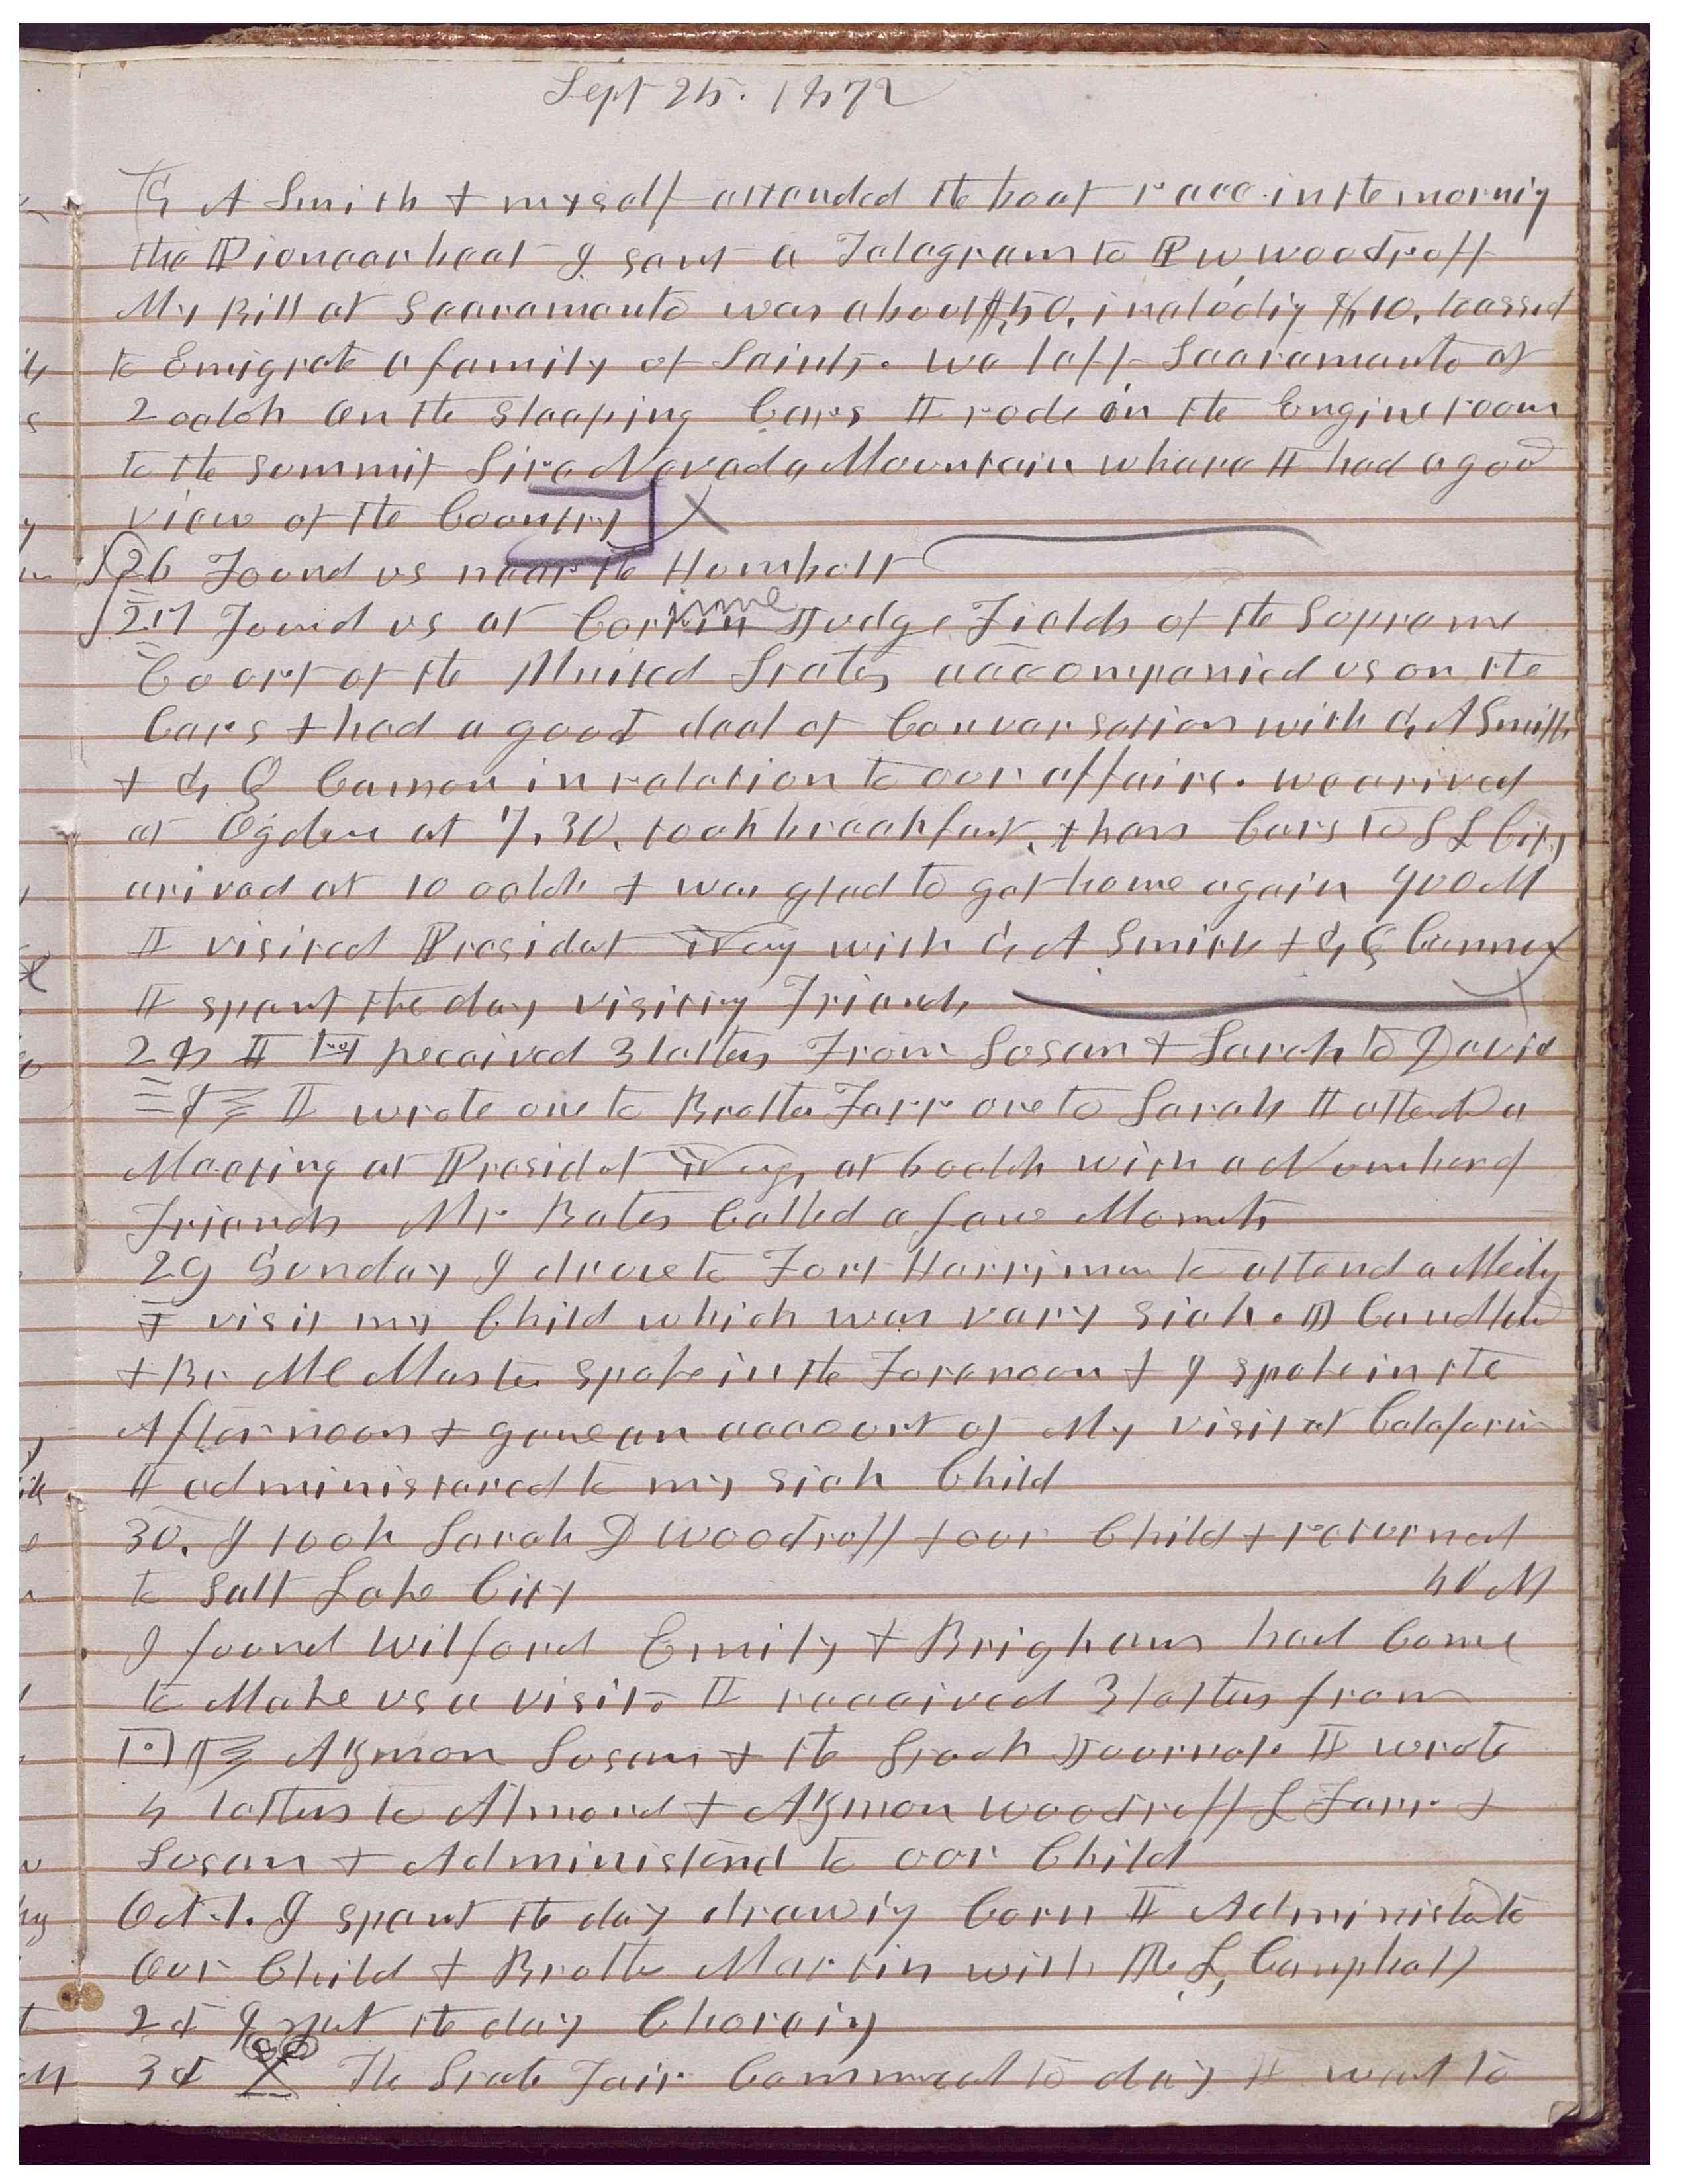 Sept 25. 1872
G A Smith & myself attended the boat race in the morning
the Pioneer beat I sent a Telegram to P W Woodruff
My Bill at Sacramento was about $50, includig $10,
to Emigrate a family of Saints. we left Sacramento at
2 oclok on the sleeping Cars I rode in the Engine room
to the summit Sira Nevada Mountain whare I had a good
view of the Country
26 Found us near the Humbolt
27 Found us at Corinne Judge Fields of the Supreme
Court of the United States accompanied us on the
Cars & had a good deal of Conversation with G A Smith
& G Q Cannon in relation to our affairs. we arived
at Ogden at 7,30, took breakfast, then Cars to S L City
arived at 10 oclok & was glad to get home again 900 M
I visited Presidet Yung with G A Smith & G Q Cannon
I spent the day visiting Friends
28 I received 3 letters From Susan & Sarah to David
I wrote one to Brother Farr one to Sarah I attend a
Meeting at Presidet Yung at 6 oclok with a Number of
Friends Mr Bates Called a few Moments
29 Sunday I drove to Fort Harriman to attend a Meeting
& visit my Child which was vary sick. Candland
& Br McMaster spoke in the Forenoon & I spoke in the
Afternoon & gave an account of My visit at Califorin
I administered to my sick Child
30. I took Sarah D Woodruff & our Child & returned
to Salt Lake City 40 M
I found Wilford Emily & Brigham had Come
to Make us a visit. I received 3 letters from
Azmon Susan & the Stock Journal. I wrote
4 letters to Almond & Azmon Woodruff L Farr &
Susan & Administerd to our Child
Oct. 1. I spent the day drawig Corn I Administed to
Our Child & Brother Martin with R. L, Campbell
2d I spent the day Choreing
3d The State Fair Commencd to day I went to